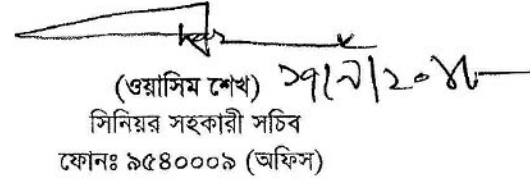 (ওয়াসিম শেখ)
সিনিয়র সহকারী সচিব
ফোনঃ ৯৫৪০০০৯ (অফিস)